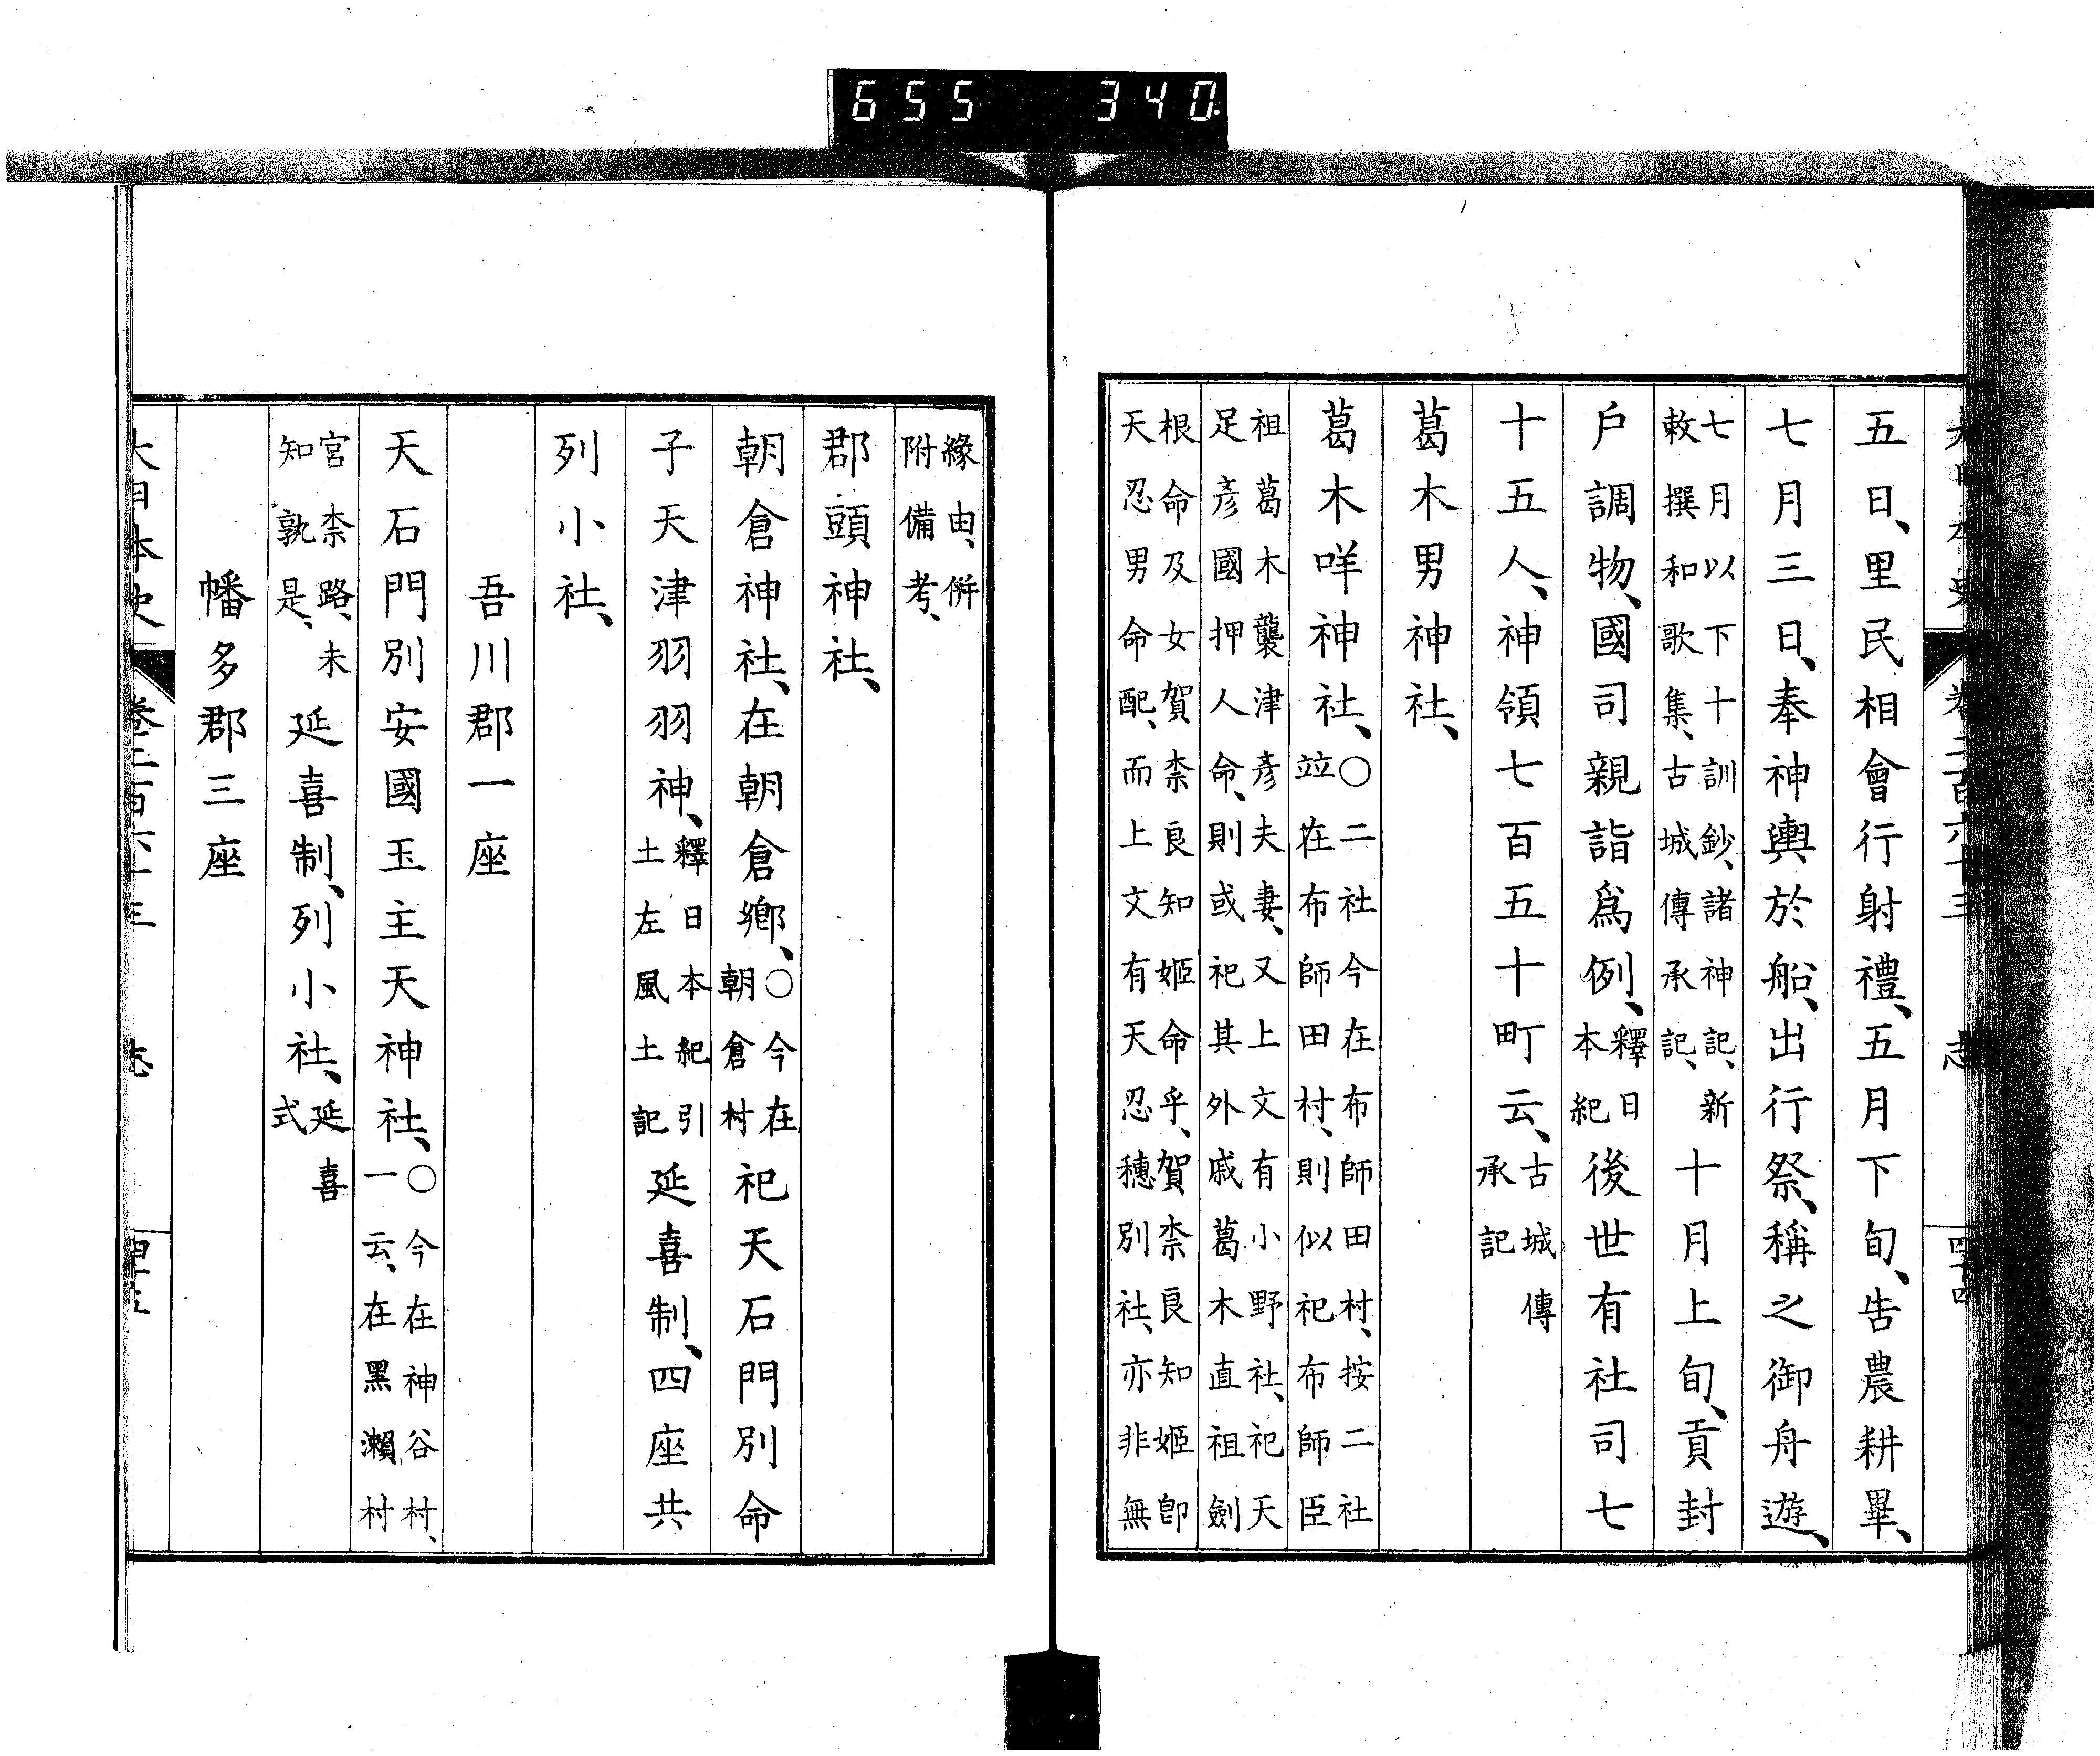 655 340
五日、里民相會行射禮、五月下旬、告農耕畢、
七月三日、奉神輿於船、出行祭、稱之御舟遊、
七月以下十訓鈔、諸神記、新
敕撰和歌集、古城傳承記、
十月上旬、貢封
戶調物、國司親詣爲例、
釋日
本紀
後世有社司七
十五人、神領七百五十町云、
古城傳
承記
葛木男神社、
葛木咩神社、
○二社今在布師田村、按二社
竝在布師田村、則似祀布師臣
祖葛木襲津彥夫妻、又上文有小野社、祀天
足彥國押人命、則或祀其外戚葛木直祖劍
根命及女賀柰良知姬命乎、賀柰良知姬卽
天忍男命配、而上文有天忍穗別社、亦非無
緣由、倂
附備考、
郡頭神社、
朝倉神社、在朝倉鄕、
○今在
朝倉村
祀天石門別命
子天津羽羽神、
釋日本紀引
土左風土記
延喜制、四座共
列小社、
吾川郡一座
天石門別安國玉主天神社、
○今在神谷村、
一云、在黑瀨村
宮柰路、未
知孰是、
延喜制、列小社、
延喜
式
幡多郡三座
大日本史 卷二百六十三 志